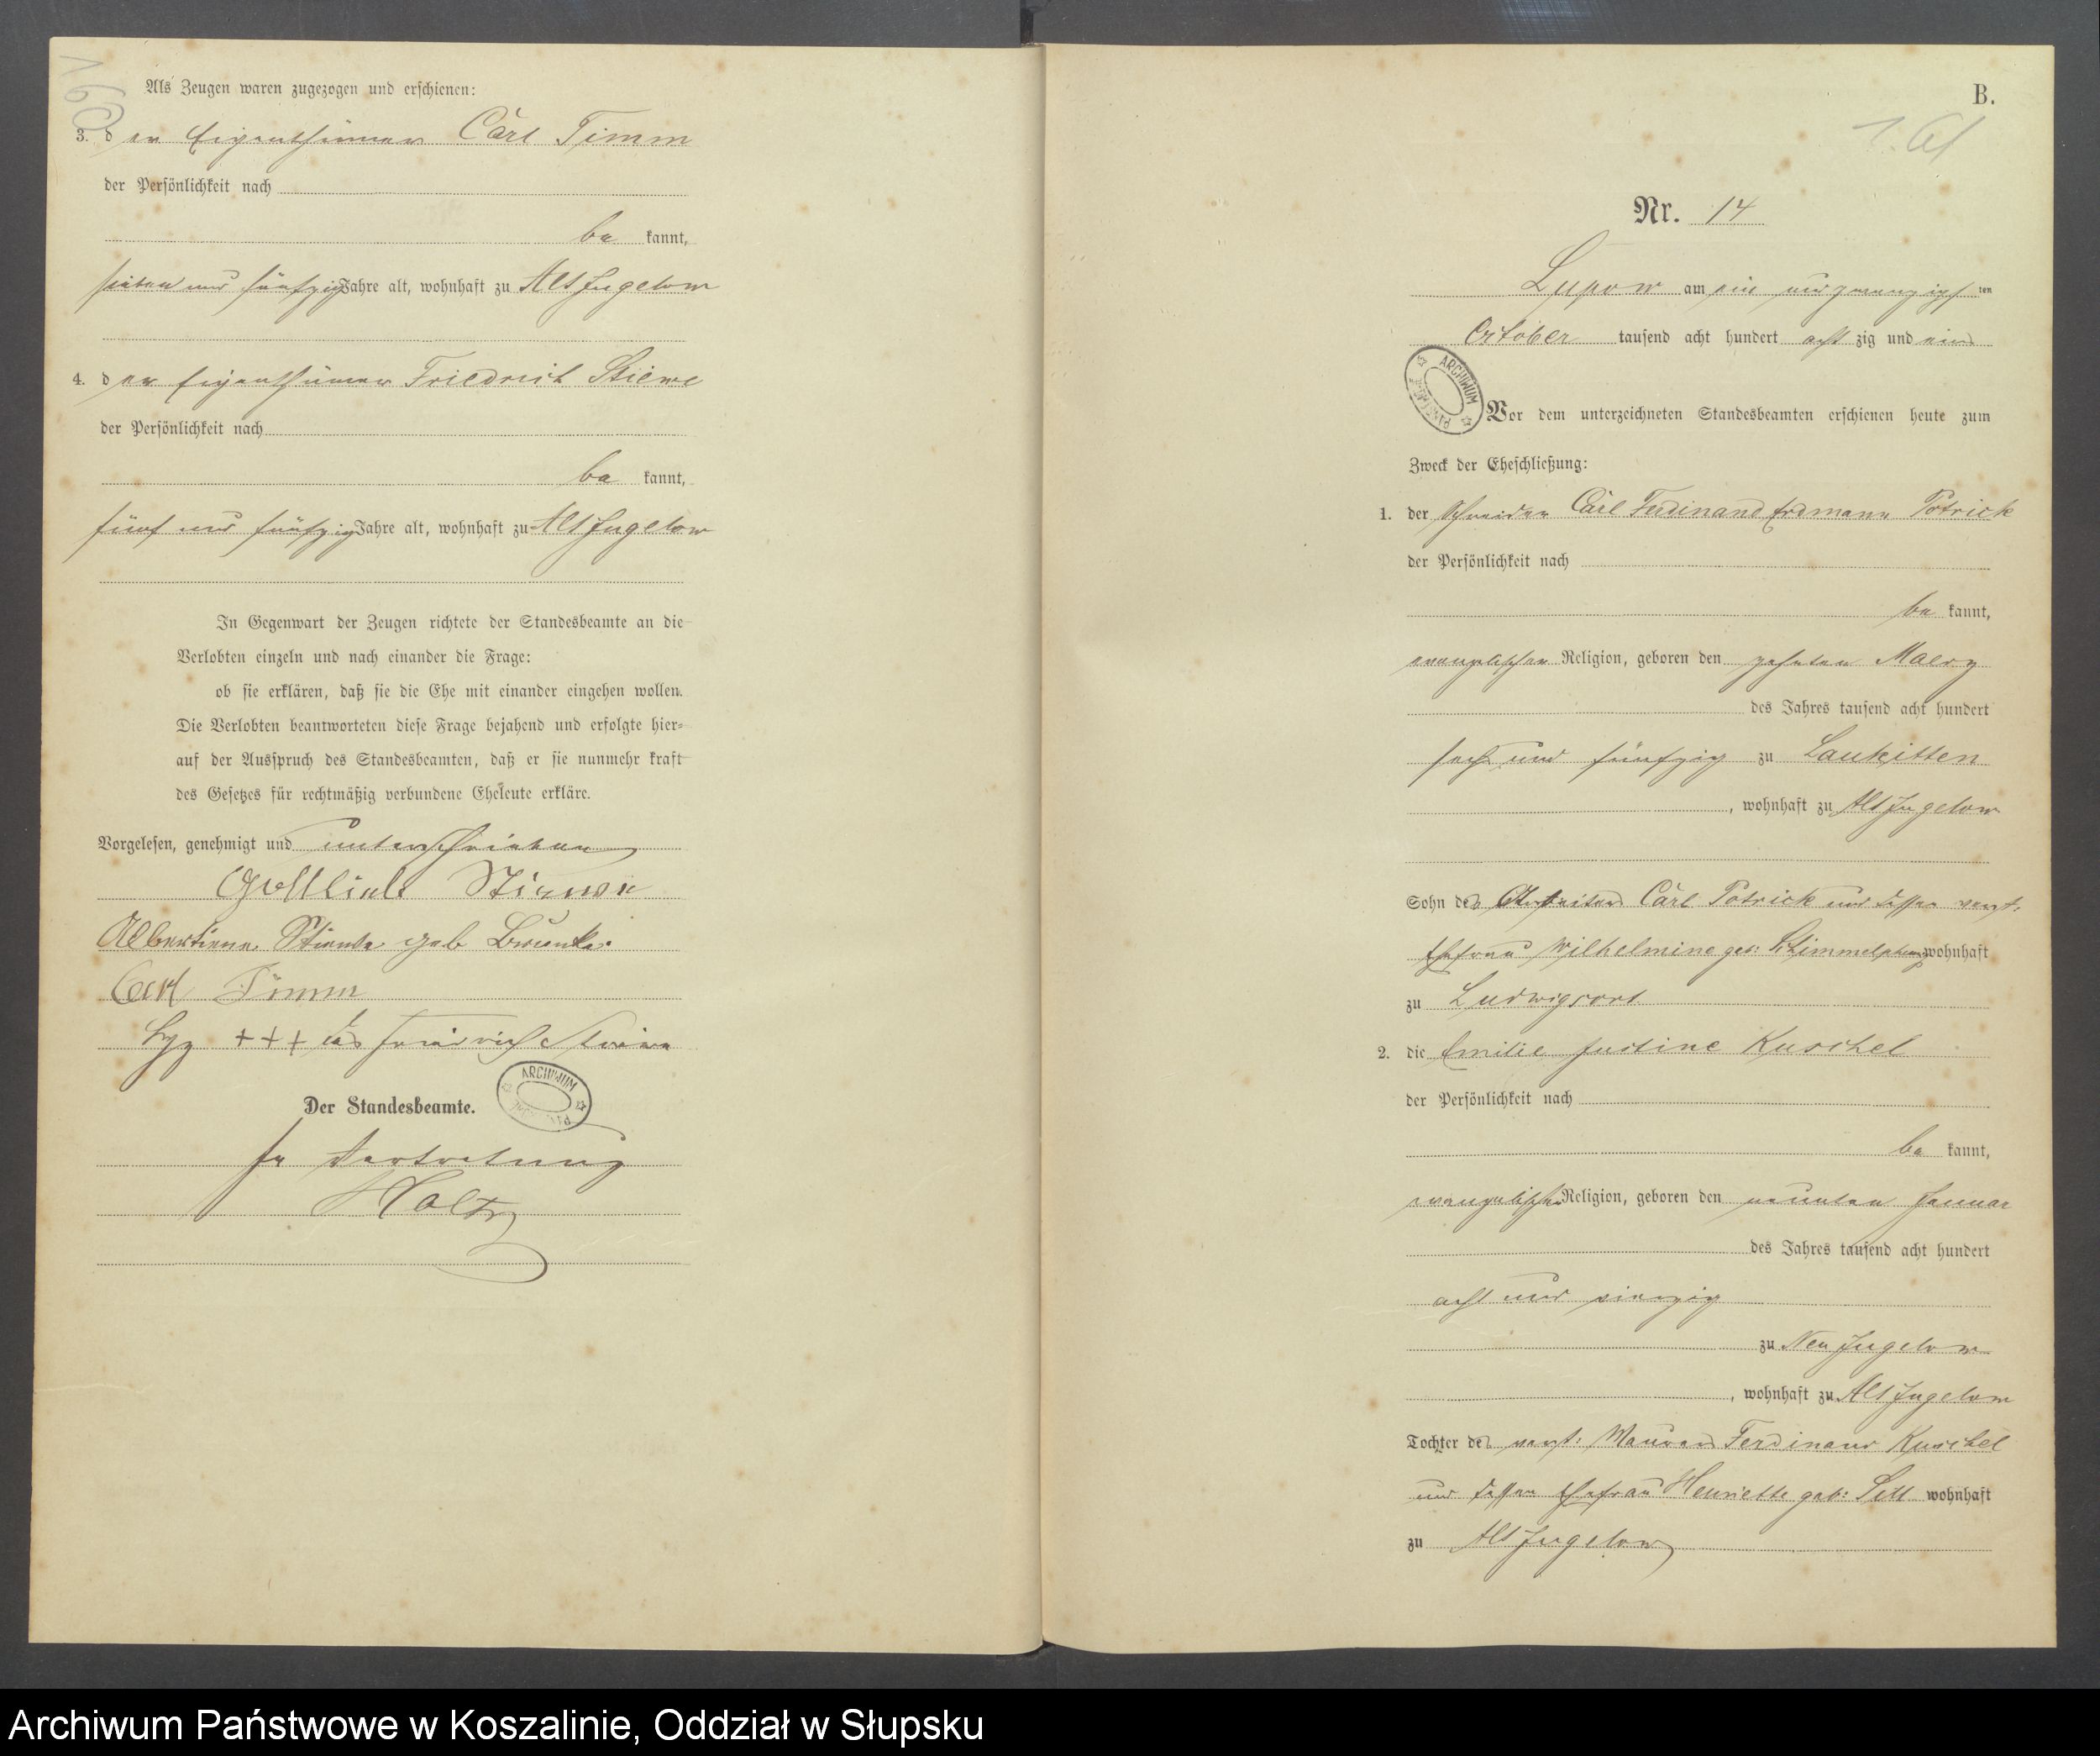 Als Zeugen waren zugezogen und erschienen:
3. d er Eigenthümer Carl Timm
der Persönlichkeit nach
be kannt,
sieben und fünfzig Jahre alt, wohnhaft zu Alt Jugelow
4. d er Eigenthümer Friedrich Stiewe
der Persönlichkeit nach
be kannt,
fünf und fünfzig Jahre alt, wohnhaft zu Alt Jugelow
In Gegenwart der Zeugen richtete der Standesbeamte an die
Verlobten einzeln und nach einander die Frage:
ob sie erklären, daß sie die Ehe mit einander eingehen wollen.
Die Verlobten beantworteten diese Frage bejahend und erfolgte hier=
auf der Ausspruch des Standesbeamten, daß er sie nunmehr kraft
des Gesetzes für rechtmäßig verbundene Eheleute erkläre.
Vorgelesen, genehmigt und unterschrieben
Gottlieb Stiewe
Albertine Stiewe geb
Carl Timm
+++ des Friedrich Stiewe
Der Standesbeamte.
ARCHIWUM
In Vertretung
Holtz
B.
Nr. 14
Lupow am ein und zwanzigsten
October tausend acht hundert acht zig und eins
ARCHIWUM
Vor dem unterzeichneten Standesbeamten erschienen heute zum
Zweck der Eheschließung:
1. der Schneider Carl Ferdinand Erdmann Potrick
der Persönlichkeit nach
be kannt,
evangelischer Religion, geboren den zehnten Maerz
des Jahres tausend acht hundert
sechs und fünfzig zu Laukitten
, wohnhaft zu Alt Jugelow
Sohn des Arbeiters Carl Potrick und dessen verst:
Ehefrau Wilhelmine geb: Schimmelpfennig wohnhaft
zu Ludwigsort
2. die Emilie Justine Kuschel
der Persönlichkeit nach
be kannt,
evangelischer Religion, geboren den neunten Januar
des Jahres tausend acht hundert
acht und vierzig
zu Neu Jugelow
, wohnhaft zu Alt Jugelow
Tochter des verst: Maurers Ferdinand Kuschel
und dessen Ehefrau Henriette geb: Sill wohnhaft
zu Alt Jugelow
Archiwum Państwowe w Koszalinie, Oddział w Słupsku